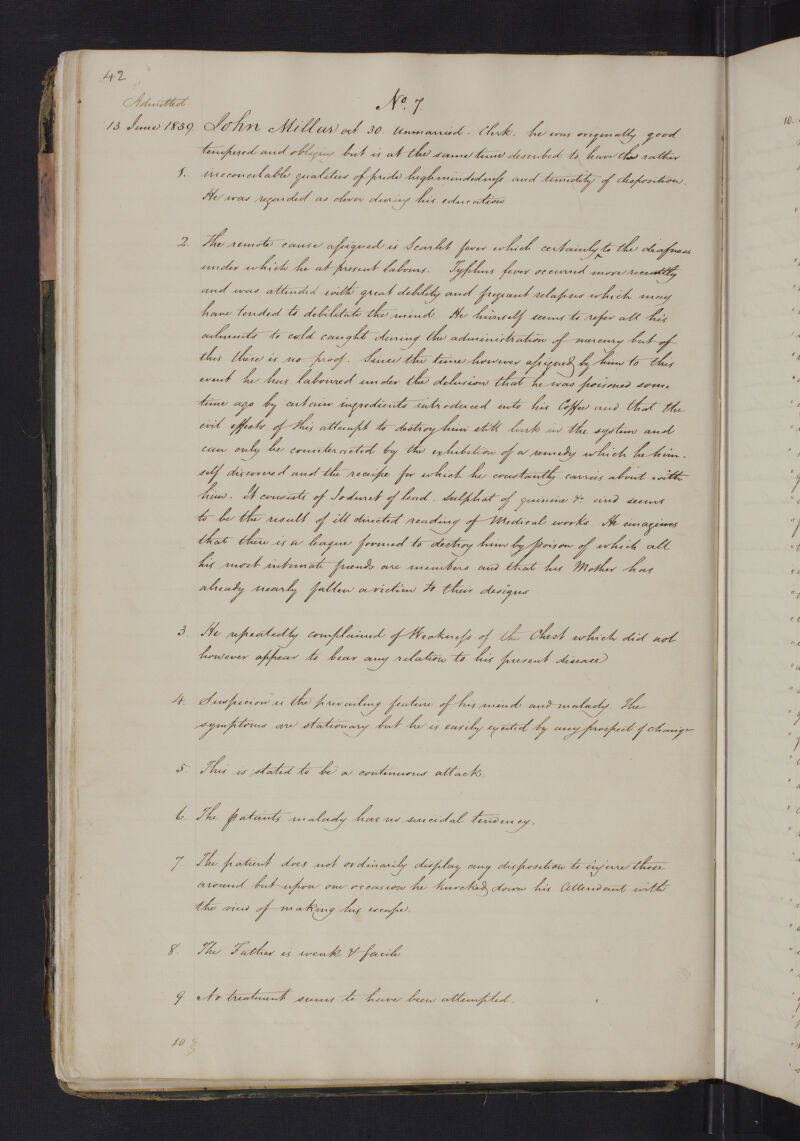 42
Admitted
No. 7.
13 June 1839 John Millar aet 30 unmarried - Clerk. he was originally good
tempered and obliging but is at the same time described to have the rather
1. irreconcilable qualities of pride highmindedness and timidity of disposition.
He was regarded as clever during his education
2. The remote cause assigned is Scarlet fever which certainly ^ to the deafness
under which he at present labours. Typhus fever occurred more recently
and was attended with great debility and frequent relapses which may
have tended to debilitate the mind. He himself seems to refer all his
ailments to cold caught during the administration of mercury but of
this there is no proof. Since the time however assigned by him to this
event he has laboured under the delusion that he was poisoned some
time ago by certain ingredients introduced into his Coffee and that the
evil effects of this attempt to destroy him still lurk in the system and
can only be counteracted by the exhibition of a remedy which he him-
self discovered and the receipe for which he constantly carries about with
him. It consists of Ioduret of lead. sulphat of quinine &. and seems
to be the result of ill directed reading of Medical works. He imagines
that there is a league formed to destroy him by poison of which all
his most intimate friends are members and that his Mother has
already nearly fallen a victim to their designs
3. He repeatedly complained of Weakness of the Chest which did not
however appear to bear any relation to his present disease
4. Suspicion is the prevailing feature of his mind and malady. The
symptoms are stationary but he is easily excited by any prospect of change
5. This is stated to be a continuous attack.
6. The patients malady has no suicidal tendency.
7 The patient does not ordinarily display any disposition to injure those
around but upon one occasion he knocked down his Attendant with
the view of making his escape.
8. The Father is weak & facile
9 No treatment seems to have been attempted.
10
10.